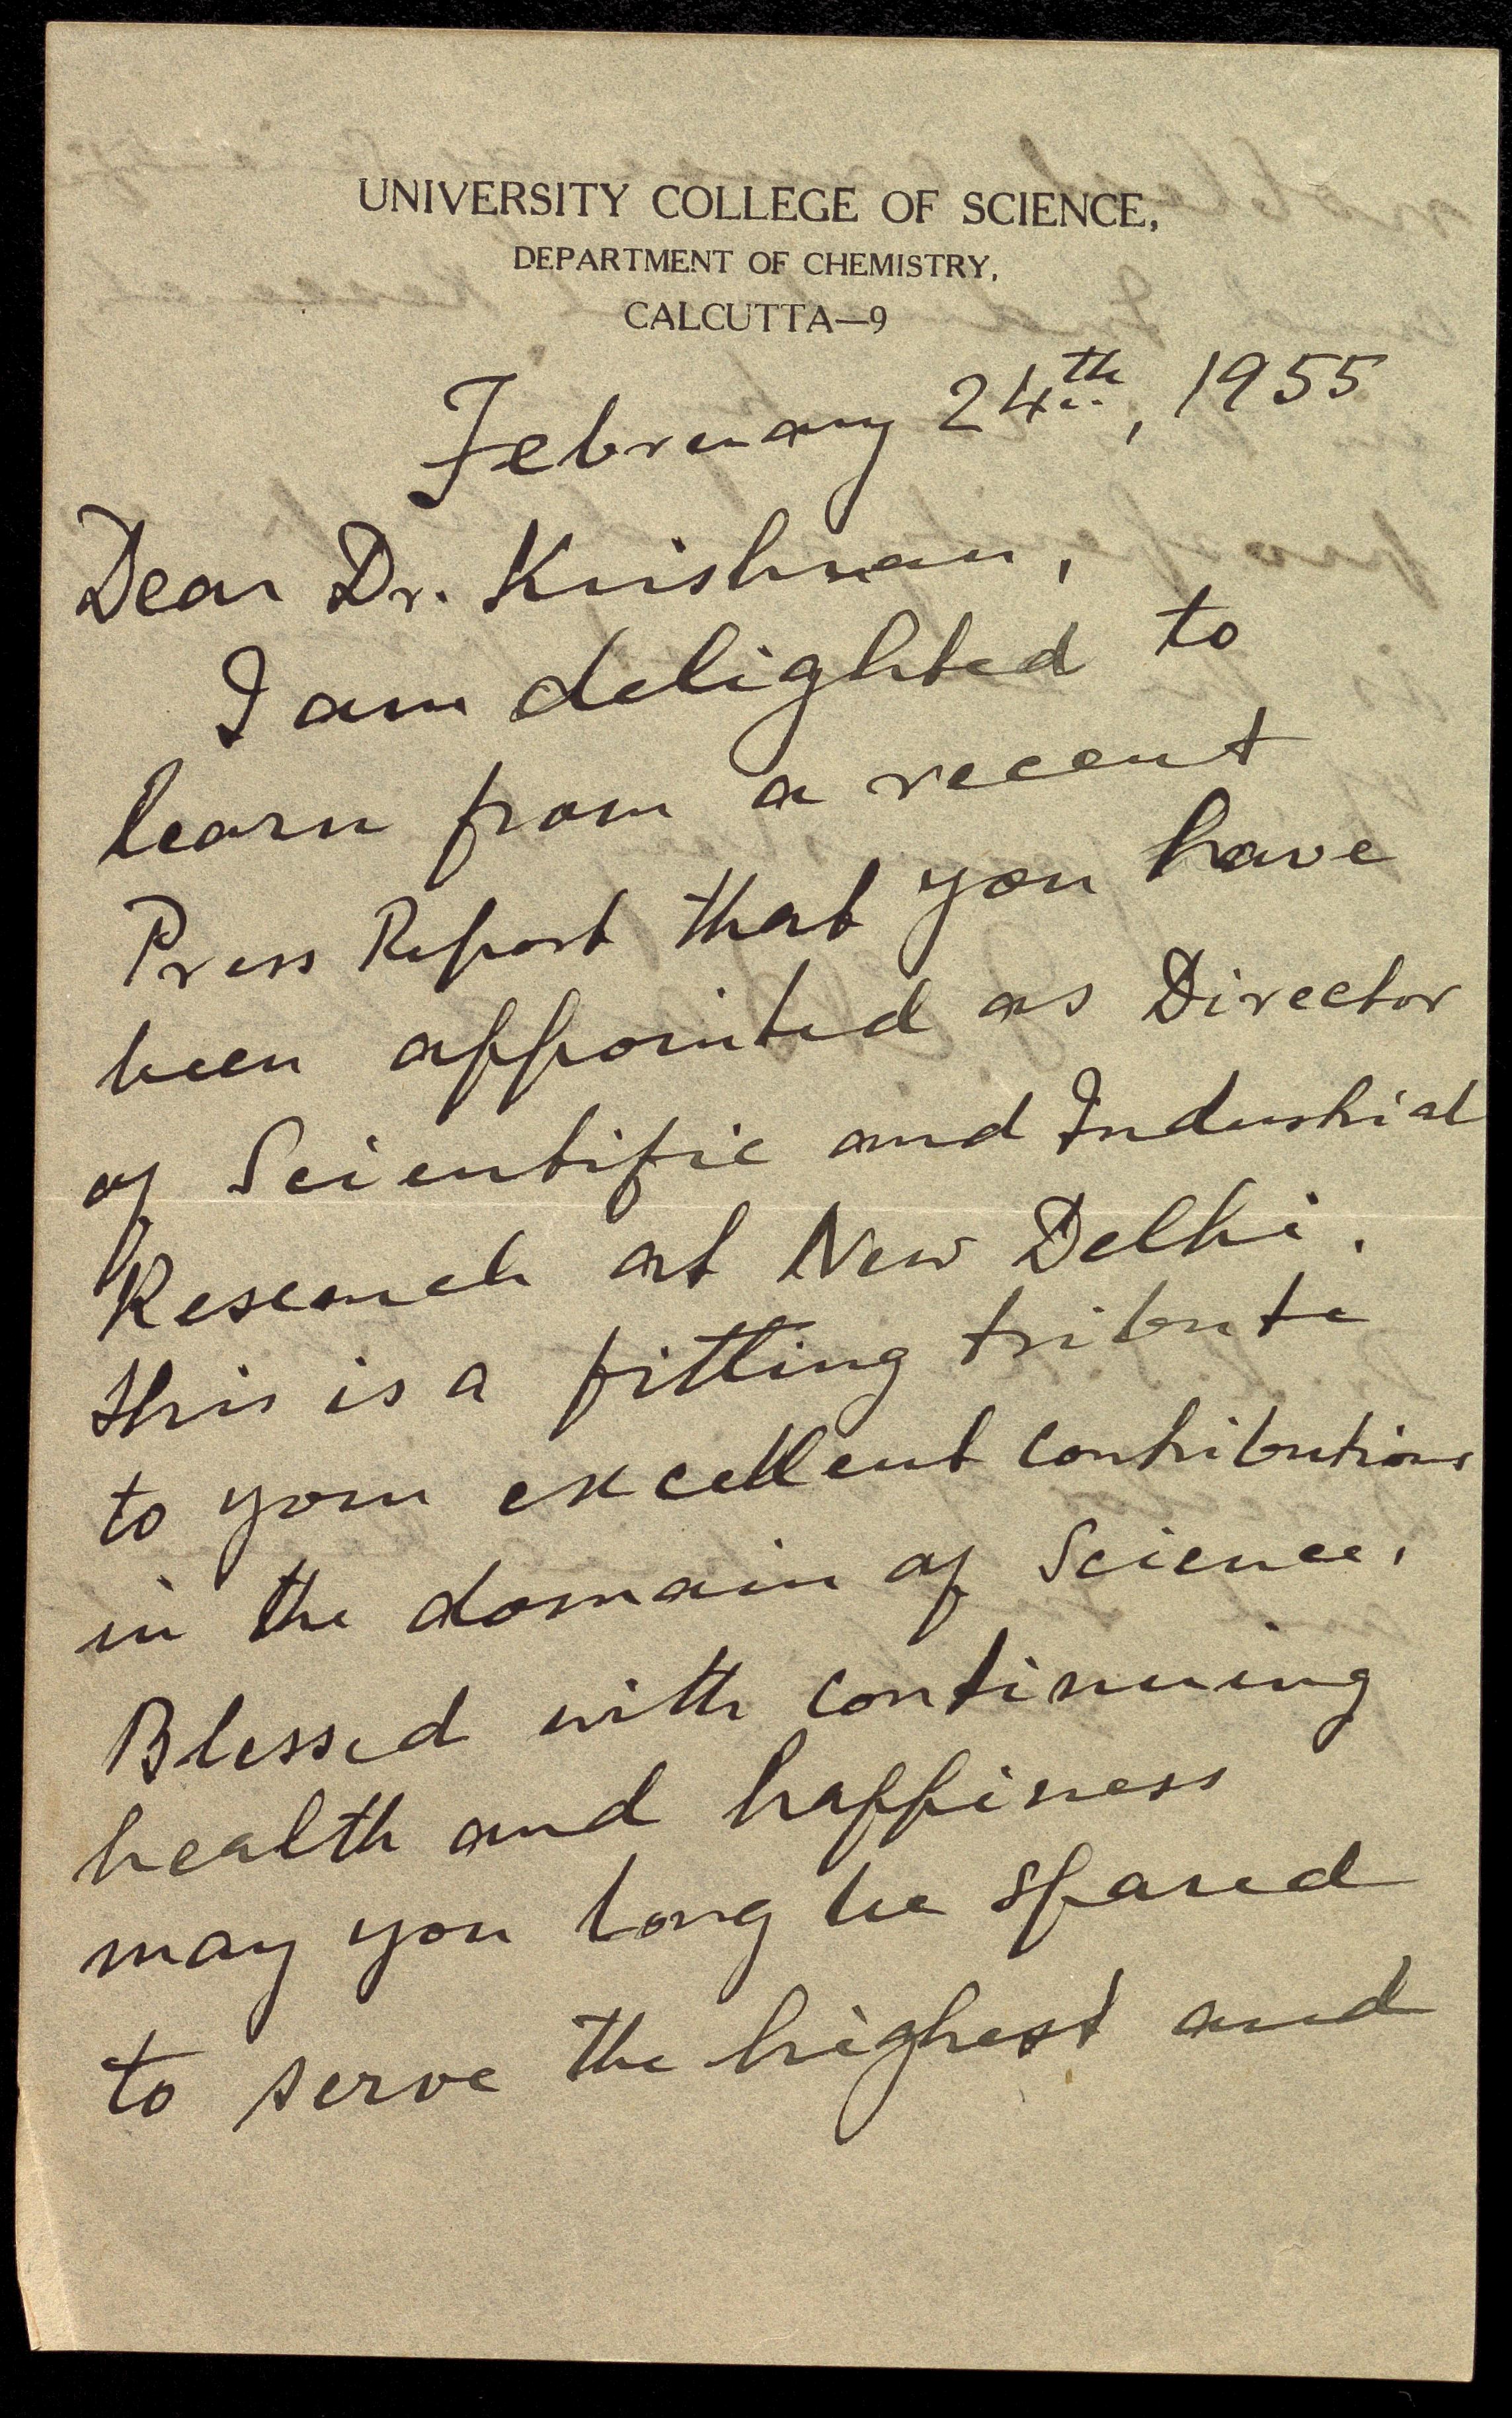 UNIVERSITY COLLEGE OF SCIENCE,
DEPARTMENT OF CHEMISTRY,
CALCUTTA—9
February 24th, 1955
Dear Dr. Krishnan,
I am delighted to
learn from a recent
Press Report that you have
been appointed as Director
of Scientific and Industrial
Research at New Delhi.
This is a fitting tribute
to your excellent contributions
in the domain of Science.
Blessed with continuing
health and happiness
may you long be spared
to serve the highest and